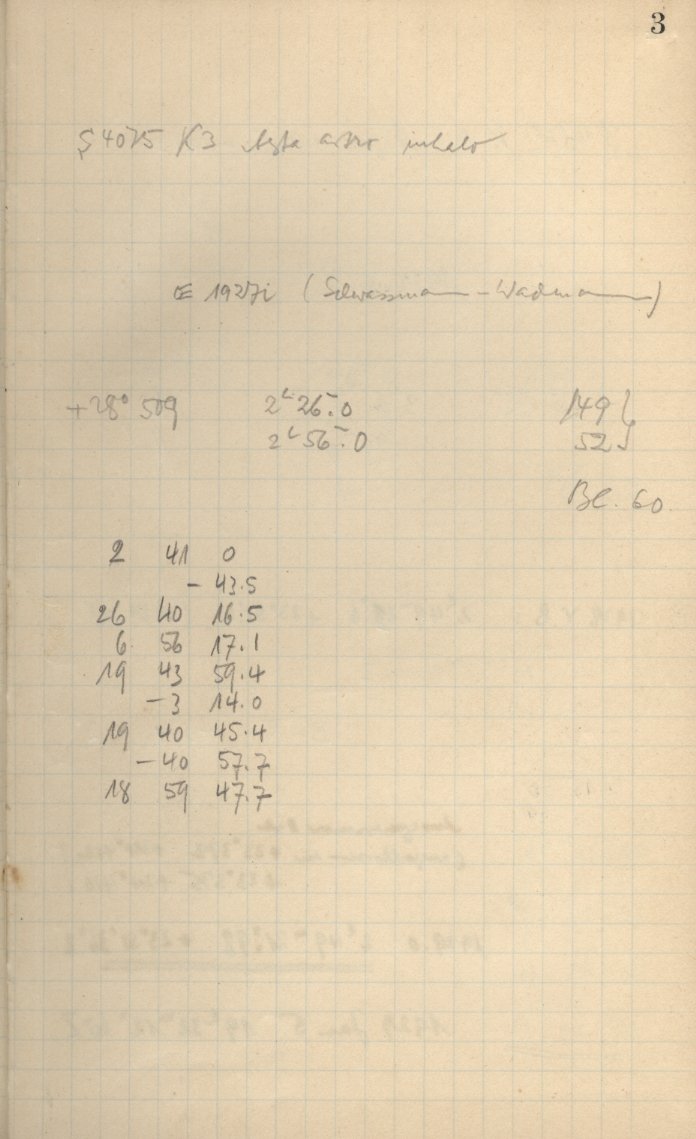 3
S4075 K3
Œ 1927i (Schwassmann-Wachmann)
+28° 509 2ʰ 26ᵐ.0 149
2ʰ 56ᵐ.0 52
Bl. 60
2 41 0
- 43.5
26 40 16.5
6 56 17.1
19 43 59.4
-3 14.0
19 40 45.4
-40 57.7
18 59 47.7